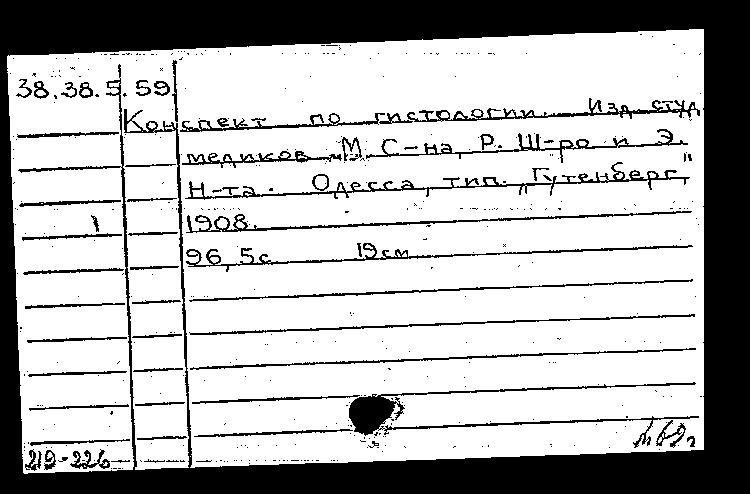 38.38.5.59.
Конспект по гистологии. Изд. студ.
медиков М. С-на, Р. Ш-ро и Э.
Н-та. Одесса, тип. „Гутенберг",
1908.
1
96, 5с 19см
219-226